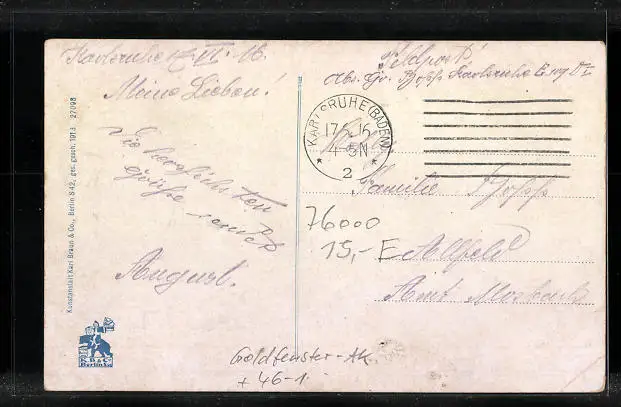 Karlsruhe 17. VI. 16.
Meine Lieben!
Die herzlichsten
Grüße sendet
August.
Feldpost!
Karlsruhe
KARLSRUHE (BADEN)
17.6.16
4-5N
2
Familie
Allfeld
Amt Mosbach
76000
15,- E
Goldfenster-AK
+ 46-1
Kunstanstalt Karl Braun & Co., Berlin S 42, ges. gesch. 1913 27098
K.B.&C.
Berlin